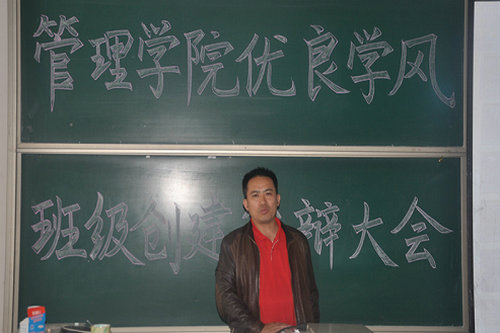 管理学院优良学风
班级创建辩大会